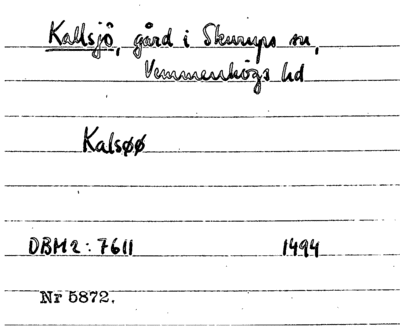 Kallsjö, gård i Skurups sn,
Vemmenhögs hd
Kalsøø
DBM2: 7611 1494
Nr 5872.